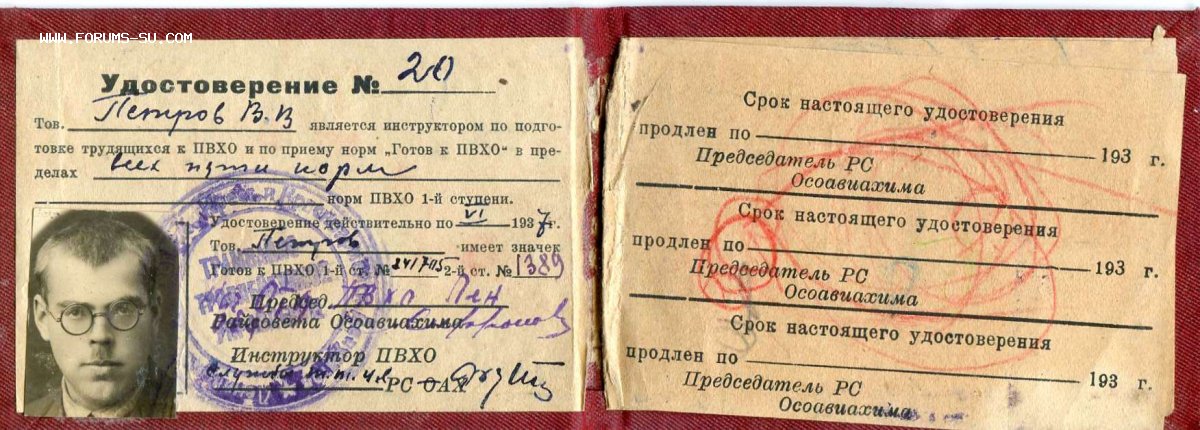 WWW.FORUMS-SU.COM
Удостоверение № 20
Тов. Петров В.В является инструктором по подго-
товке трудящихся к ПВХО и по приему норм „Готов к ПВХО“ в пре-
делах всех пяти норм
норм ПВХО 1-й ступени.
Удостоверение действительно по VI 1937г.
Тов. Петров имеет значек
Готов к ПВХО 1-й ст. № 2-й ст. № 1389
Председ. ПВХО Лен
Райсовета Осоавиахима
Инструктор ПВХО
РС ОАХ
Срок настоящего удостоверения
продлен по 193 г.
Председатель РС
Осоавиахима
Срок настоящего удостоверения
продлен по 193 г.
Председатель РС
Осоавиахима
Срок настоящего удостоверения
продлен по 193 г.
Председатель РС
Осоавиахима